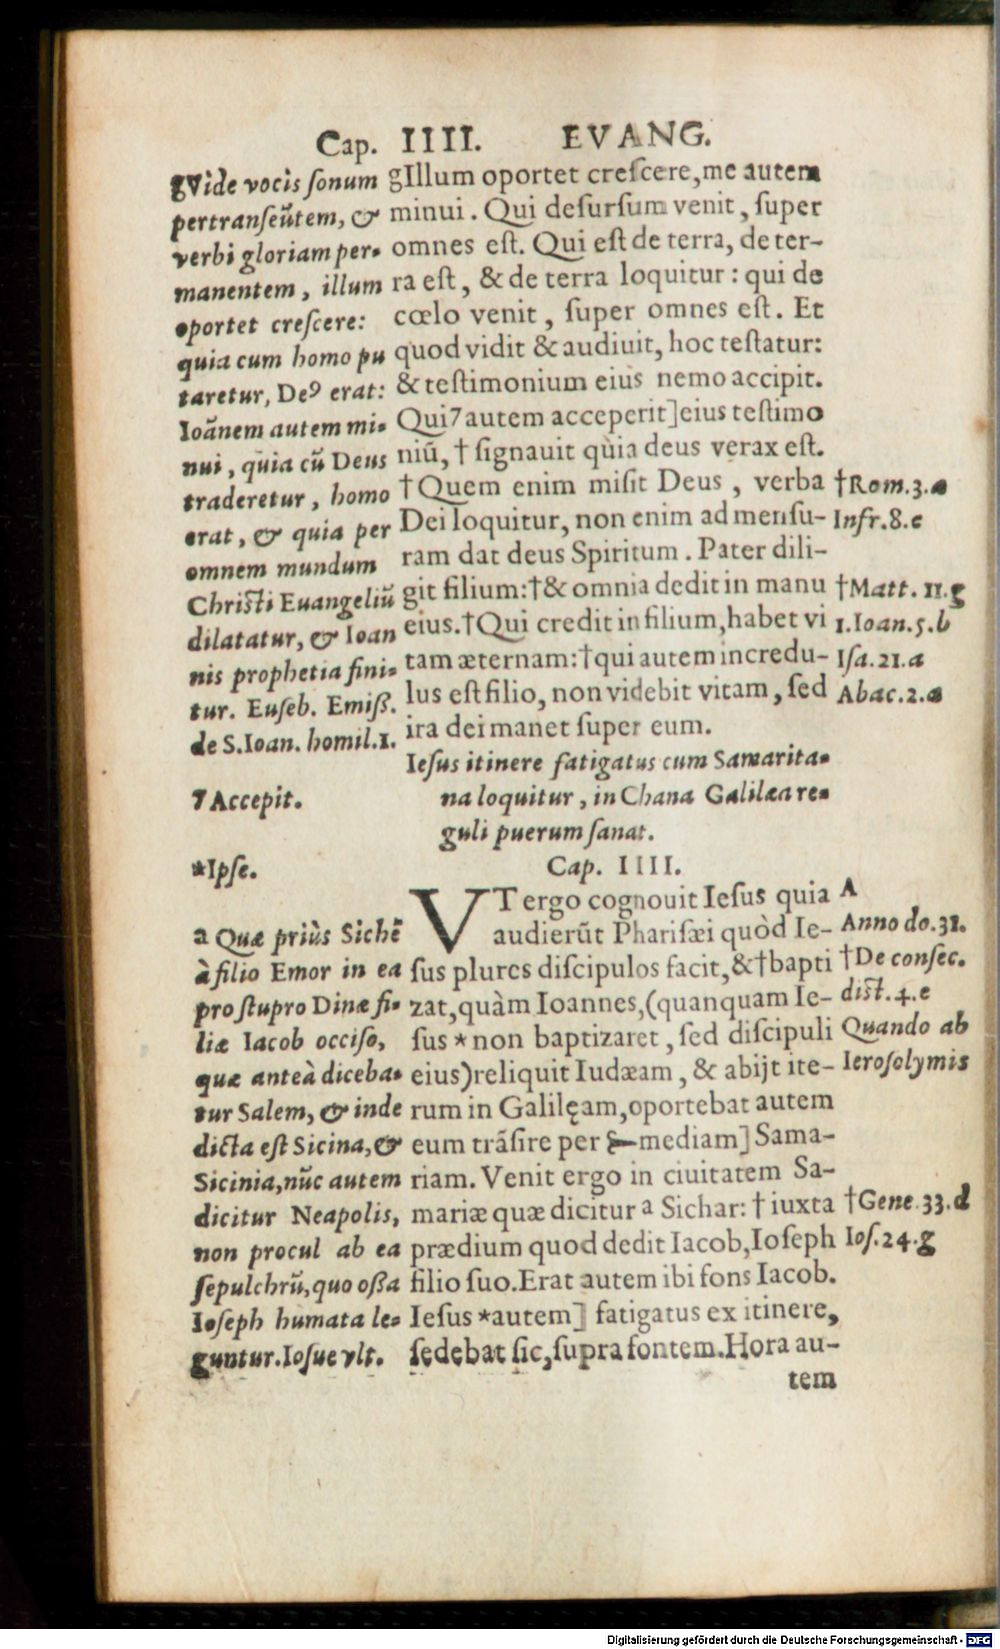 Cap. IIII. EVANG.
gVide vocis sonum
pertranseũtem, &
verbi gloriam per-
manentem, illum
oportet crescere:
quia cum homo pu
taretur, Deꝰ erat:
Ioãnem autem mi-
nui, quia cũ Deus
traderetur, homo
erat, & quia per
omnem mundum
Christi Euangeliũ
dilatatur, & Ioan
nis prophetia fini-
tur. Euseb. Emiss.
de S. Ioan. homil. 1.
7 Accepit.
*Ipse.
a Quæ priùs Sichẽ
à filio Emor in ea
pro stupro Dinæ fi-
liæ Iacob occiso,
quæ anteà diceba-
tur Salem, & inde
dicta est Sicina, &
Sicinia, nũc autem
dicitur Neapolis,
non procul ab ea
sepulchrũ, quo ossa
Ioseph humata le-
guntur. Iosue vlt.
gIllum oportet crescere, me autem
minui. Qui desursum venit, super
omnes est. Qui est de terra, de ter-
ra est, & de terra loquitur: qui de
cœlo venit, super omnes est. Et
quod vidit & audiuit, hoc testatur:
& testimonium eius nemo accipit.
Qui 7 autem acceperit] eius testimo
niũ, † signauit quia deus verax est.
†Quem enim misit Deus, verba
Dei loquitur, non enim ad mensu-
ram dat deus Spiritum. Pater dili-
git filium: †& omnia dedit in manu
eius. †Qui credit in filium, habet vi
tam æternam: †qui autem incredu-
lus est filio, non videbit vitam, sed
ira dei manet super eum.
Iesus itinere fatigatus cum Samarita-
na loquitur, in Chana Galilæa re-
guli puerum sanat.
Cap. IIII.
VT ergo cognouit Iesus quia
audierũt Pharisæi quòd Ie-
sus plures discipulos facit, &†bapti
zat, quàm Ioannes, (quanquam Ie-
sus * non baptizaret, sed discipuli
eius) reliquit Iudæam, & abijt ite-
rum in Galilęam, oportebat autem
eum trãsire per mediam] Sama-
riam. Venit ergo in ciuitatem Sa-
mariæ quæ dicitur a Sichar: † iuxta
prædium quod dedit Iacob, Ioseph
filio suo. Erat autem ibi fons Iacob.
Iesus *autem] fatigatus ex itinere,
sedebat sic, supra fontem. Hora au-
tem
†Rom. 3. a
Infr. 8. e
†Matt. 11. g
1. Ioan. 5. b
Isa. 21. a
Abac. 2. a
A
Anno do. 31.
†De consec.
dist. 4. e
Quando ab
Ierosolymis
†Gene. 33. d
Ios. 24. g
Digitalisierung gefördert durch die Deutsche Forschungsgemeinschaft - DFG